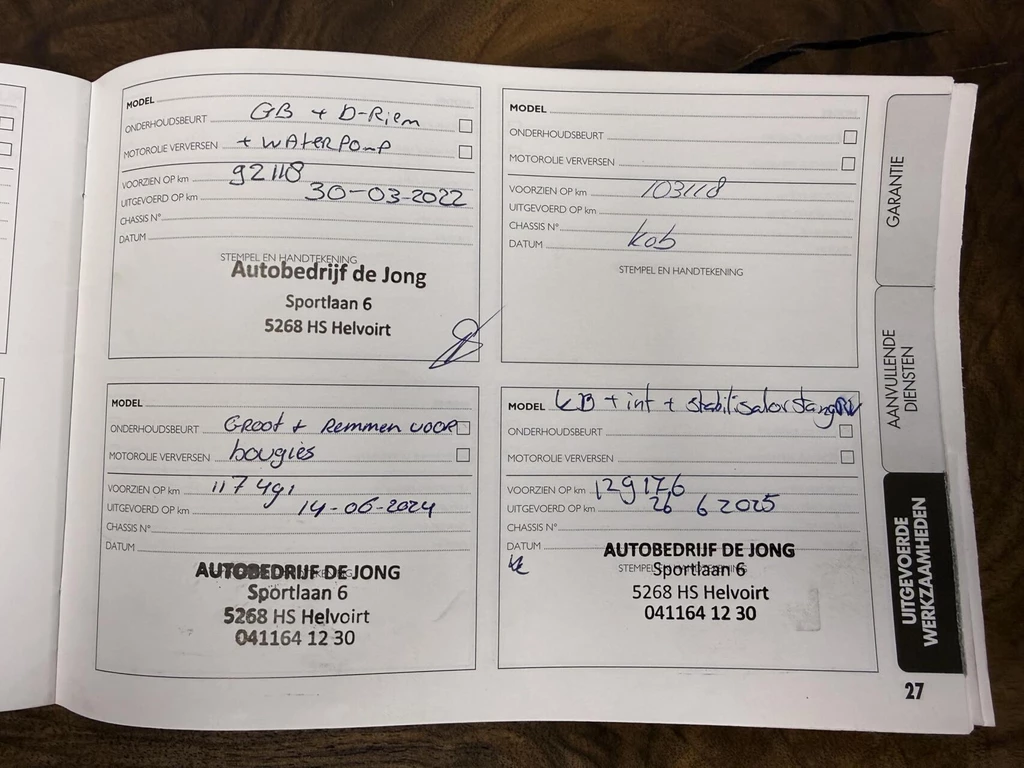 MODEL
ONDERHOUDSBEURT GB + D-Riem
MOTOROLIE VERVERSEN + WAterpomp
VOORZIEN OP km 92118
UITGEVOERD OP km 30-03-2022
CHASSIS N°
DATUM
STEMPEL EN HANDTEKENING
Autobedrijf de Jong
Sportlaan 6
5268 HS Helvoirt
MODEL
ONDERHOUDSBEURT
MOTOROLIE VERVERSEN
VOORZIEN OP km 103118
UITGEVOERD OP km
CHASSIS N°
DATUM
STEMPEL EN HANDTEKENING
MODEL
ONDERHOUDSBEURT Groot + Remmen voor
MOTOROLIE VERVERSEN bougies
VOORZIEN OP km 117491
UITGEVOERD OP km 14-06-2024
CHASSIS N°
DATUM
AUTOBEDRIJF DE JONG
Sportlaan 6
5268 HS Helvoirt
041164 12 30
MODEL KB + int + stabilisatorstang
ONDERHOUDSBEURT
MOTOROLIE VERVERSEN
VOORZIEN OP km 129176
UITGEVOERD OP km 26 6 2025
CHASSIS N°
DATUM
AUTOBEDRIJF DE JONG
STEMPEL EN HANDTEKENING
Sportlaan 6
5268 HS Helvoirt
041164 12 30
GARANTIE
AANVULLENDE
DIENSTEN
UITGEVOERDE
WERKZAAMHEDEN
27